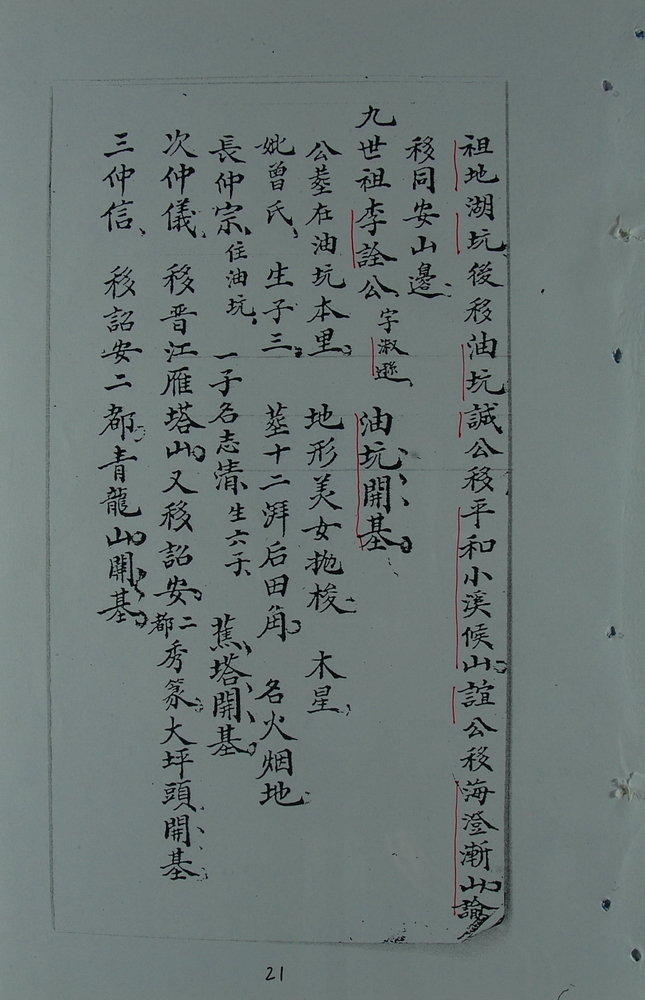 祖地湖坑後移油坑誠公移平和小溪候山誼公移海澄漸山諭
移同安山邊
九世祖李詮公字淑遜 油坑開基
公塟在油坑本里 地形美女抛梭 木星
妣曾氏 生子三 塟十二湃后田角 名火烟地
長仲宗住油坑 一子名志清生六子 蕉塔開基
次仲儀 移晋江雁塔山又移詔安二都秀篆大坪頭開基
三仲信 移詔安二都青龍山開基
21